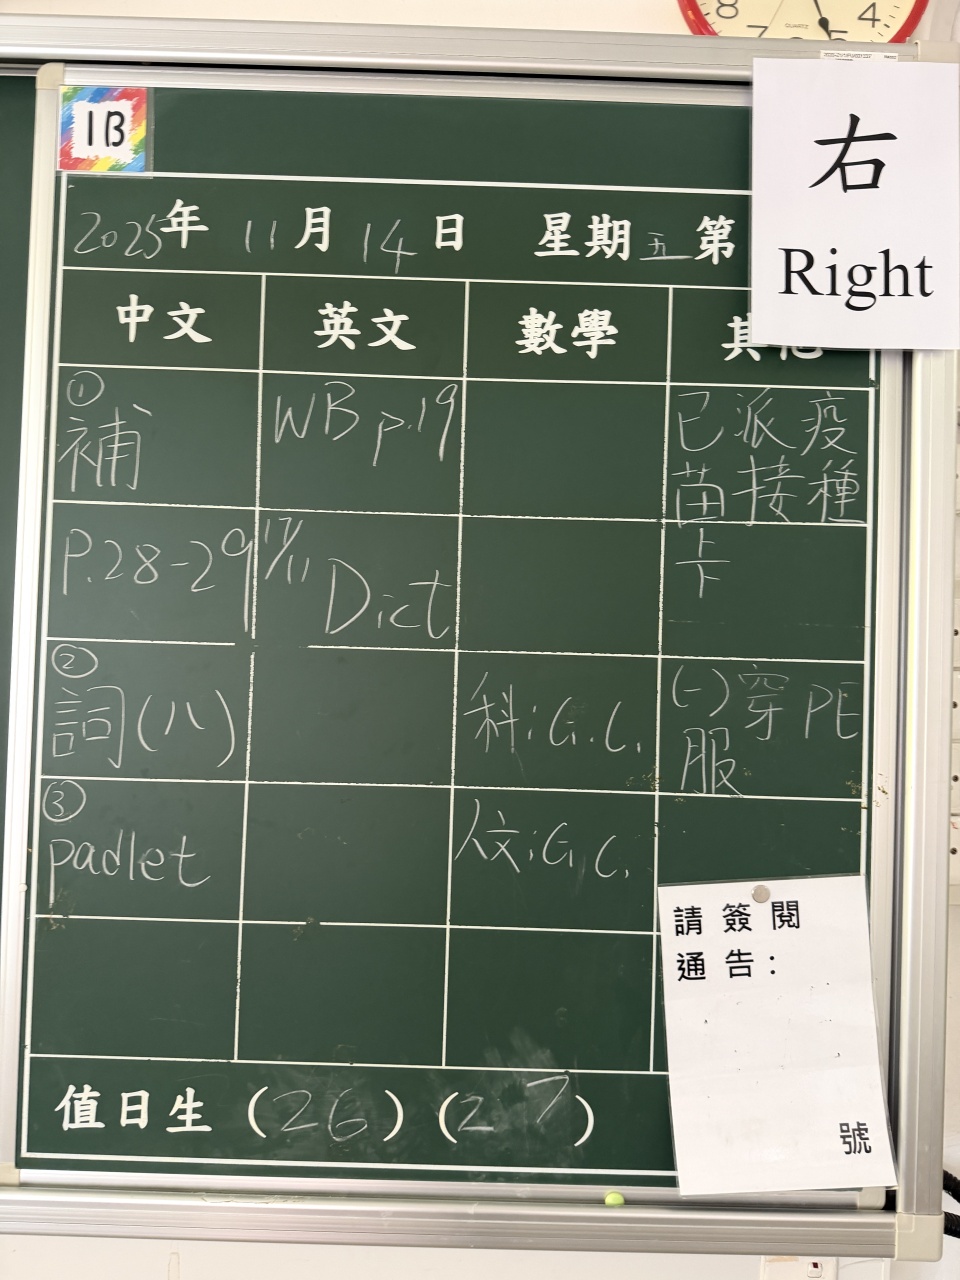 8 4
7 5
QUARTZ
1B
右
Right
2025年 11月 14日 星期五 第
中文 英文 數學
① 補
P.28-29
② 詞(八)
③ padlet
WB p.19
17/11 Dict
科:G.C.
人文:G.C.
已派疫
苗接種
卡
(一)穿PE
服
請簽閱
通告:
號
值日生 (26) (27)